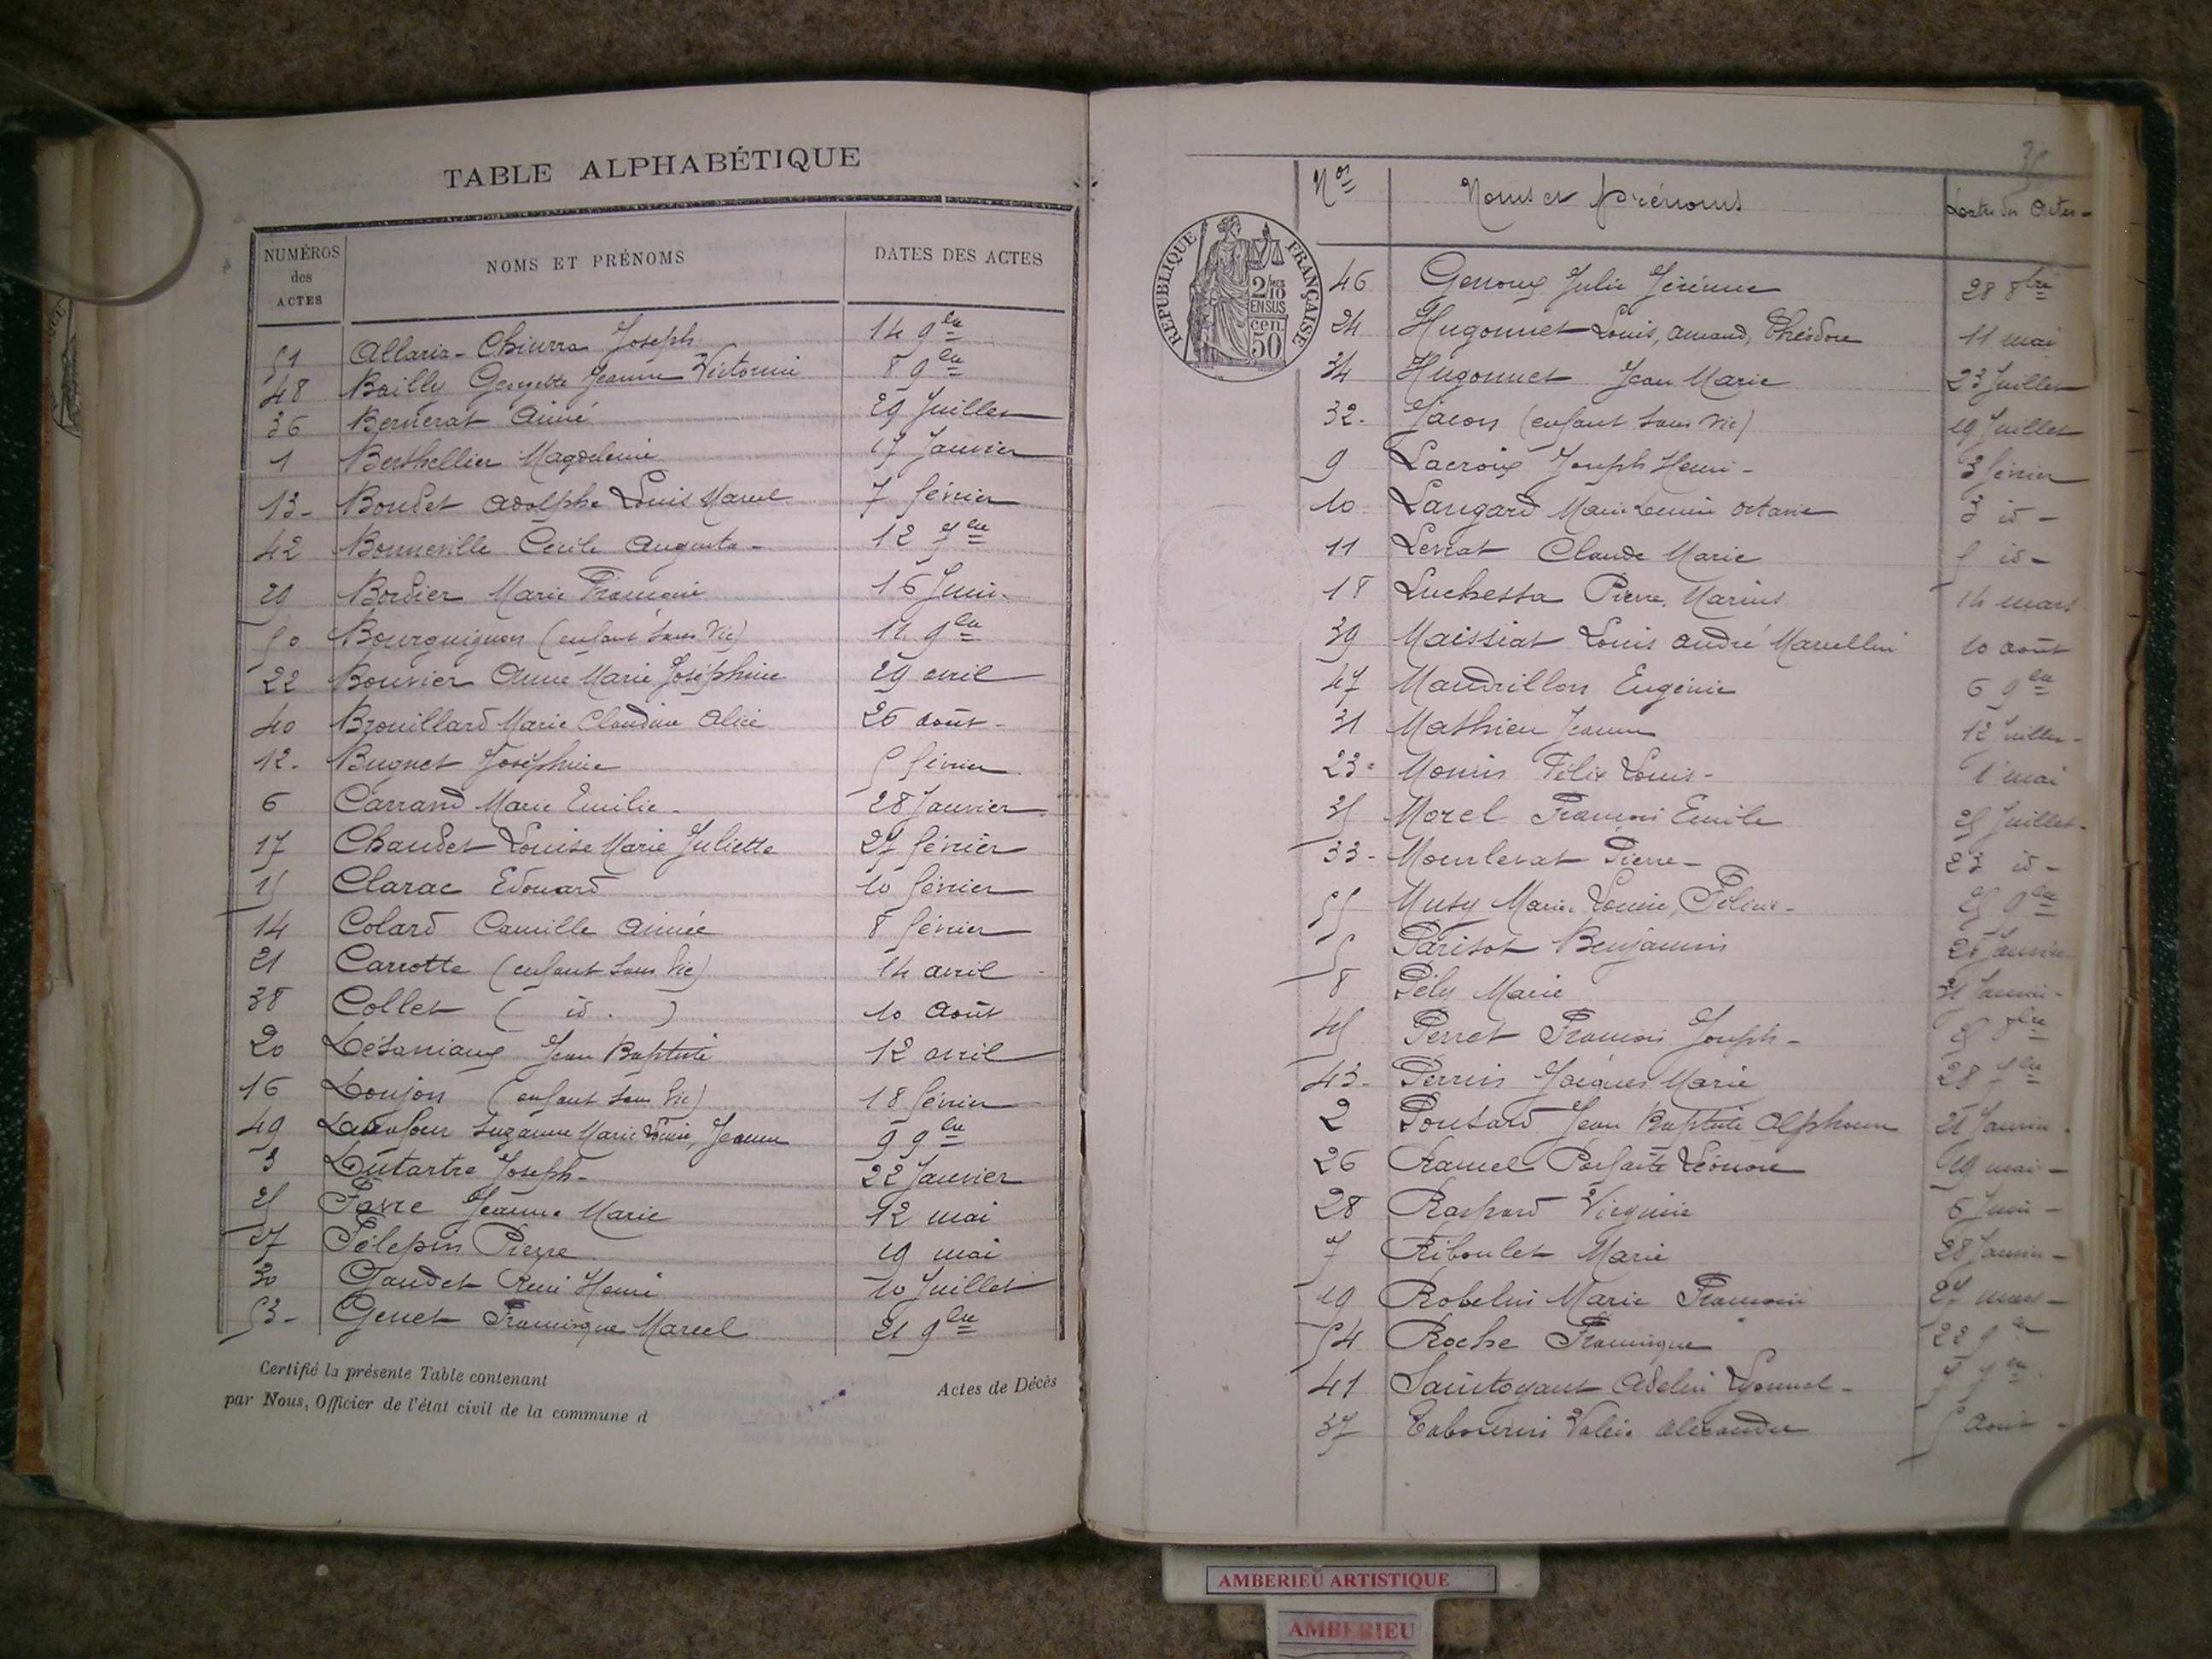 TABLE ALPHABÉTIQUE
NUMÉROS des ACTES NOMS ET PRÉNOMS DATES DES ACTES
51 Allaria-Chiurra Joseph 14 9bre
48 Bailly Georgette Jeanne Victorine 8 9bre
36 Bernerat Aimé 29 Juillet
1 Berthellier Magdeleine 17 Janvier
13- Boudet Adolphe Louis Marcel 7 février
42 Bonneville Cécile Augusta- 12 7bre
29 Bordier Marie Françoise 16 Juin-
50 Bourguignon (enfant sans vie) 11 9bre
22 Bouvier Anne Marie Joséphine 29 avril
40 Brouillard Marie Claudine Alice 26 août-
12- Bugnet Joséphine 5 février
6 Carrand Marie Emilie- 28 Janvier
17 Chaudet Louise Marie Juliette 27 février
15 Clarac Edouard 10 février
14 Colard Camille Aimée 8 février
21 Carrotte (enfant sans vie) 14 avril
38 Collet ( id. ) 10 Août
20 Jean Baptiste 12 avril
16 Donjon (enfant sans vie) 18 février
49 Suzanne Marie Louise, Jeanne 9 9bre
3 Dutartre Joseph- 22 Janvier
25 Favre Jeanne Marie 12 mai
27 Félepin Pierre 19 mai
30 Gaudet René Henri 10 Juillet
53- Genet Francisque Marcel 21 9bre
Certifié la présente Table contenant Actes de Décès
par Nous, Officier de l'état civil de la commune d
35
Nos Noms et Prénoms Dates des Actes-
RÉPUBLIQUE FRANÇAISE
2/10 EN SUS
cen 50
46 Genoux Julie Jérémie 28 8bre
24 Hugonnet Louis, Amand, Théodore 11 mai
34 Hugonnet Jean Marie 23 Juillet
32- Jacon (enfant sans vie) 19 Juillet
9 Lacroix Joseph Henri- 3 février
10 Langard Marie Octavie 3 id-
11 Levrat Claude Marie 5 id-
18 Luchessa Pierre, Marius 14 mars
39 Maissiat Louis André Marcellin 10 août
47 Mandrillon Eugénie 6 9bre
31 Mathieu Jeanne 12 Juillet-
23- Félix Louis- 1 mai
35 Morel François Emile 25 Juillet-
33- Mourlevat Pierre- 23 id-
55 Musy Marie Louise, 25 9bre
5 Parisot Benjamin 26 Janvier
8 Pély Marie 31 Janvier-
45 Perret François Joseph- 25 8bre
43- Perrin Jacques Marie 28 7bre
2 Ponsard Jean Baptiste Alphonse 21 Janvier
26 Ramel Parfaite Léonore 19 mai-
28 Raspard Virginie 6 Juin-
7 Riboulet Marie 28 Janvier-
19 Robelin Marie Françoise 27 mars-
54 Roche Francisque 22 9bre
41 Saintoyant Adelin Lyonnel- 7 7bre
37 Tabourin Alexandre 5 Août-
AMBERIEU ARTISTIQUE
AMBERIEU